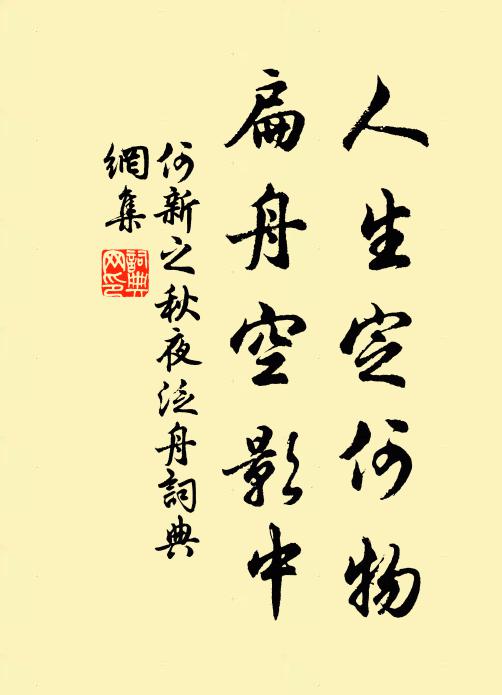 人生定何物
扁舟空影中
何新之秋夜泛舟詞典
網集
詞典
网印